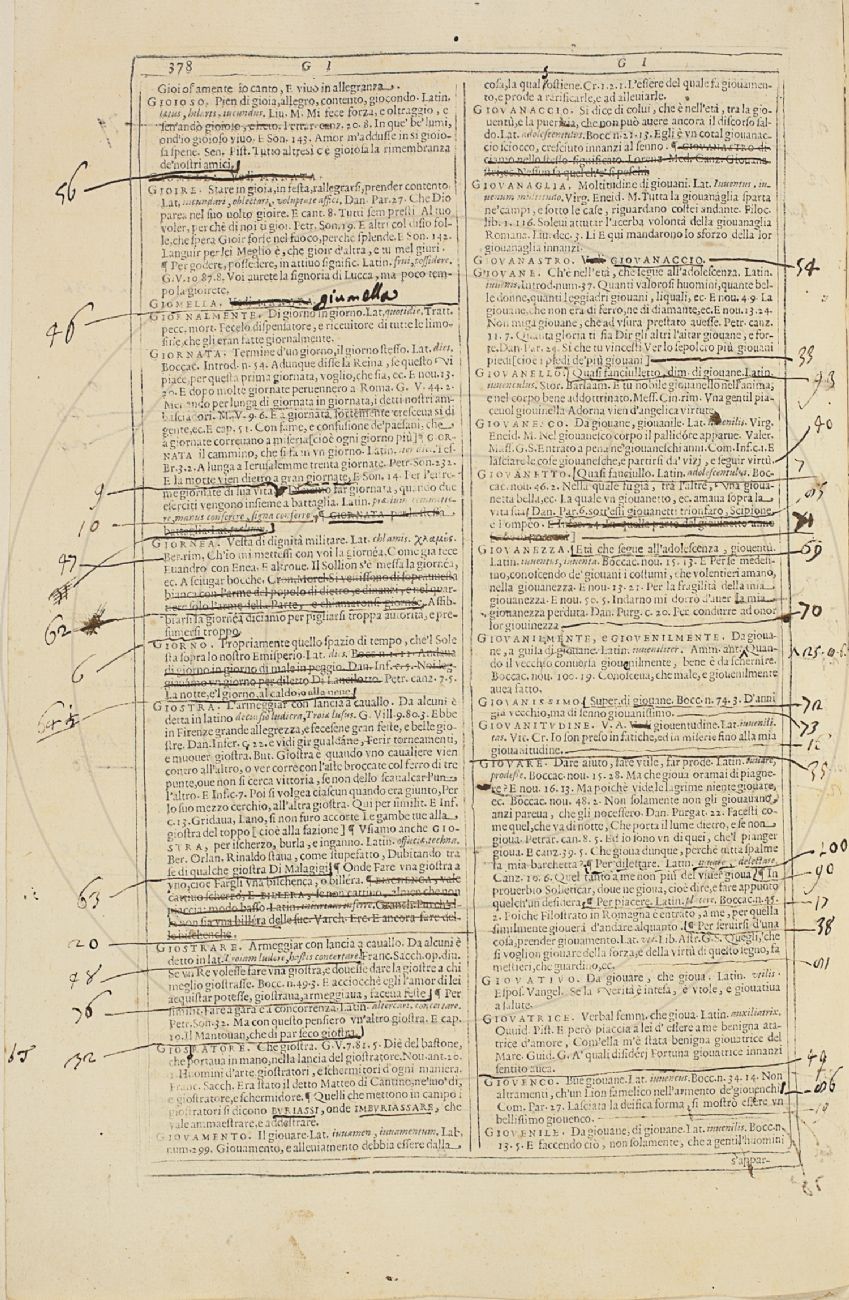 378 G I
Gioiosamente io canto, E vivo in allegranza.
GIOIOSO. Pien di gioia, allegro, contento, giocondo. Latin.
lætus, hilaris, iucundus. Liu. M. Mi fece forza, e oltraggio, e
Canz. 20. 8. In que' be' lumi,
ond'io gioioso viuo. E Son. 143. Amor m'addusse in sì gioio-
sa spene. Sen. Pist. Tutto altresì c'è gioiosa la rimembranza
de'nostri amici.
56
GIOIRE. Stare in gioia, in festa, rallegrarsi, prender contento.
Lat. iucundare, oblectari, voluptate affici, Dan. Par. 27. Che Dio
parea nel suo uolto gioire. E cant. 8. Tutti sem presti Al tuo
voler, perchè di noi ti gioi. Petr. Son. 19. E altri col disio fol-
le, che spera Gioir forse nel fuoco, perchè splende. E Son. 142.
Languir per lei Meglio è, che gioir d'altra, e tu mel giuri.
¶ Per godere, possedere, in attiuo signific. Latin. frui, possidere.
G. V. 10. 87. 8. Voi aurete la signoria di Lucca, ma poco tem-
po la gioirete.
GIOMELLA. giumella
46
GIORNALMENTE. Di giorno in giorno. Lat. quotidie. Tratt.
pecc. mort. Fecelo dispensatore, e riceuitore di tutte le limo-
sine, che gli eran fatte giornalmente.
GIORNATA. Termine d'un giorno, il giorno stesso. Lat. dies.
Boccac. Introd. n. 54. Adunque disse la Reina, se questo vi
piace, per questa prima giornata, voglio, che sia, ec. E nou. 13.
20. E dopo molte giornate peruennero a Roma. G. V. 44. 2.
Menando per lunga di giornata in giornata, i detti nostri am-
basciadori. M. V. 9. 6. E a giornata fortemente cresceua sì di
gente, ec. E cap. 51. Con fame, e confusione de'paesani, che
a giornate correuano a miseria [cioè ogni giorno più] ¶ GIOR-
NATA il cammino, che si fa in vn giorno. Latin. Tes.
Br. 3. 2. A lunga a Ierusalemme trenta giornate. Petr. Son. 232.
E la motte vien dietro a gran giornate, E Son. 14. Per l'estre-
9
me giornate di sua vita far giornata, quando due
eserciti vengono insieme a battaglia. Latin.
10
re, manus conserere, signa conferre ¶ GIORNATA
47
GIORNEA. Vesta di dignità militare. Lat. chlamis.
Ber. rim. Ch'io mi mettessi con voi la giornéa. Come già fece
Euandro con Enea. E altroue. Il Sollion s'è messa la giornéa,
ec. A sciugar bocche.
Affib-
biarsi la giornéa diciamo per pigliarsi troppa autorità, e pre-
sumersi troppo
62
GIORNO. Propriamente quello spazio di tempo, che'l Sole
sta sopra lo nostro Emisperio. Lat. dies.
6
Petr. canz. 7. 5.
La notte, e'l giorno, al caldo, e alla neue
64
GIOSTRA. L'armeggiar con lancia a cauallo. Da alcuni è
detta in latino decursio ludicra, Troiæ lusus. G. Vill. 9. 80. 3. Ebbe
in Firenze grande allegrezza, e fecesene gran feste, e belle gio-
stre. Dan. Infer. c. 22. e vidi gir gualdane, Ferir torneamenti,
e muouer giostra. But. Giostra è quando vno caualiere vien
contro all'altro, o ver corre con l'aste broccate col ferro di tre
punte, oue non si cerca vittoria, se non dello scaualcar l'un
l'altro. E Inf. c. 7. Poi si volgea ciascun quando era giunto, Per
lo suo mezzo cerchio, all'altra giostra. Qui per simil. E Inf.
c. 13. Gridaua, Lano, sì non furo accorte Le gambe tue alla
giostra del toppo [cioè alla fazione] ¶ Vsiamo anche GIO-
STRA, per ischerzo, burla, e inganno. Latin.
Ber. Orlan. Rinaldo staua, come stupefatto, Dubitando tra
se di qualche giostra Di Malagigi ¶ Onde Fare vna giostra a
vno, cioè Fargli vna bischenca, o billera.
63
20
GIOSTRARE. Armeggiar con lancia a cauallo. Da alcuni è
detto in lat. Troiam ludere, hastis concertare. Franc. Sacch. op. diu.
Se vn Re volesse fare vna giostra, e douesse dare la giostra a chi
48
meglio giostrasse. Bocc. n. 49. 3. E acciocchè egli l'amor di lei
acquistar potesse, giostraua, armeggiaua, faceua feste ¶ Per
simil. Fare a gara e a concorrenza. Latin. altercari, concertare.
36
Petr. Son. 32. Ma con questo pensiero vn'altro giostra. E cap.
10. Il Mantouan, che di par seco giostra.
32
GIOSTRATORE. Che giostra. G. V. 7. 81. 5. Diè del bastone,
che portaua in mano, nella lancia del giostratore. Nou. ant. 20.
1. Huomini d'arte, giostratori, e schermitori d'ogni maniera.
Franc. Sacch. Era stato il detto Matteo di Cantino, ne'suo'dì,
e giostratore, e schermidore. ¶ Quelli che mettono in campo i
giostratori si dicono BVRIASSI, onde IMBVRIASSARE, che
vale ammaestrare, e addestrare.
GIOVAMENTO. Il giouare. Lat. iuuamen, iuuamentum. Lab.
num. 299. Giouamento, e alleuiamento debbia essere dalla
G I
cosa, la qual sostiene. Cr. 1. 2. 1. L'essere del quale fa giouamen-
to, e prode a rarificarle, e ad alleuiarle.
GIOVANACCIO. Si dice di colui, che è nell'età, tra la gio-
uentù, e la puerizia, che non può auere ancora il discorso sal-
do. Lat. adolescentulus. Bocc. n. 21. 15. Egli è vn cotal giouanac-
cio sciocco, cresciuto innanzi al senno.
GIOVANAGLIA. Moltitudine di giouani. Lat. Iuuentus, iu-
uenum multitudo. Virg. Eneid. M. Tutta la giouanaglia sparta
ne'campi, e sotto le case, riguardano costei andante. Filoc.
lib. 1. 116. Soleui attutar l'acerba volontà della giouanaglia
Romana. Liu. dec. 3. Lì E qui mandarono lo sforzo della lor
giouanaglia innanzi.
GIOVANASTRO. Vedi GIOVANACCIO.
54
GIOVANE. Ch'è nell'età, che segue all'adolescenza. Latin.
iuuenis. Introd. num. 37. Quanti valorosi huomini, quante bel-
le donne, quanti leggiadri giouani, li quali, ec. E nou. 49. La
giouane, che non era di ferro, ne di diamante, ec. E nou. 13. 24.
Non niuga giouane, che ad vsura prestato auesse. Petr. canz.
11. 7. Quanta gloria ti fia Dir gli altri l'aitar giouane, e for-
te. Dan. Par. 24. Sì che tu vincesti Ver lo sepolcro più giouani
piedi [cioè i piedi de'più giouani]
33
GIOVANELLO. Quasi fanciulletto, dim. di giouane. Latin.
iuuenculus. Stor. Barlaam. E tu nobile giouanello nell'anima,
93
e nel corpo bene addottrinato. Mess. Cin. rim. Vna gentil pia-
ceuol giouinella Adorna vien d'angelica virtute
GIOVANESCO. Da giouane, giouanile. Lat. iuuenilis. Virg.
40
Eneid. M. Nel giouanesco corpo il pallidore apparue. Valer.
Mass. G. S. Entrato a pena ne' giouaneschi anni. Com. Inf. c. 1. E
lasciare le cose giouanesche, e partirsi da' vizj, e seguir virtù.
GIOVANETTO. Quasi fanciullo. Latin. adolescentulus. Boc-
7
cac. nou. 46. 2. Nella quale fu già, tra l'altre, vna gioua-
netta bella, ec. La quale vn giouanetto, ec. amaua sopra la
vita sua Dan. Par. 6. sott'essi giouanetti trionfaro, Scipione,
e Pompeo.
GIOVANEZZA. Età che segue all'adolescenza, giouentù.
69
Latin. iuuentus, iuuenta. Boccac. nou. 15. 13. E Per se medesi-
mo, conoscendo de' giouani i costumi, che volentieri amano,
nella giouanezza. E nou. 13. 21. Per la fragilità della mia
giouanezza. E nou. 50. 5. Indarno mi dorrò d'auer la mia
giouanezza perduta. Dan. Purg. c. 20. Per condurre ad onor
70
lor giouinezza
GIOVANILMENTE, e GIOVENILMENTE. Da gioua-
ne, a guisa di giouane. Latin. iuueniliter. Amm. ant. Quan-
do il vecchio conuersa giouenilmente, bene è da schernire.
Boccac. nou. 100. 19. Conosceua, che male, e giouenilmente
auea fatto.
GIOVANISSIMO. Super. di giouane. Bocc. n. 74. 3. D'anni
72
già vecchio, ma di senno giouanissimo.
GIOVANITVDINE. V. A. giouentudine. Lat. iuuenili-
73
tas. Vit. Cr. Io son preso in fatiche, ed in miserie fino alla mia
giouanitudine.
GIOVARE. Dare aiuto, fare vtile, far prode. Latin. iuuare,
35
prodesse. Boccac. nou. 15. 28. Ma che gioua oramai di piagne-
re? E nou. 16. 13. Ma poichè vide le lagrime niente giouare,
ec. Boccac. nou. 48. 2. Non solamente non gli giouauano,
anzi pareua, che gli nocessero. Dan. Purgat. 22. Facesti co-
me quel, che va di notte, Che porta il lume dietro, e se non
gioua. Petrar. can. 8. 5. Ed io sono vn di quei, che'l pianger
gioua. E canz. 39. 5. Che gioua dunque, perchè tutta spalme
la mia barchetta? ¶ Per dilettare. Latin. iuuare, delectare.
100
Canz. 19. 6. Quel tanto a me non più del viuer gioua ¶ In
90
prouerbio Solleticar, doue ne gioua, cioè dire, e fare appunto
quelch'un desidera. ¶ Per piacere. Latin. placere. Boccac. n. 45.
17
2. Poiche Filostrato in Romagna è entrato, a me, per quella
similmente giouerà d'andare alquanto ¶ Per seruirsi d'una
38
cosa, prender giouamento. Lat. uti. Lib. Astr. G. S. Quegli, che
si voglion giouare della forza, e della virtù di questo segno, fa
mestieri, che guardino, ec.
91
GIOVATIVO. Da giouare, che gioua. Latin. vtilis.
Espos. Vangel. Se la Verità è intesa, è vtole, e giouatiua
a salute.
GIOVATRICE. Verbal femm. che gioua. Latin. auxiliatrix.
Ouuid. Pist. E però piaccia a lei d'essere a me benigna ata-
trice d'amore, Com'ella m'è stata benigna giouatrice del
Mare. Guid. G. A' quali disiderj Fortuna giouatrice innanzi
sentito auea.
49
GIOVENCO. Bue giouane. Lat. iuuencus. Bocc. n. 34. 14. Non
altramenti, ch'un Lion famelico nell'armento de'giouenchi
Com. Par. 27. Lasciata la deifica forma, si mostrò essere vn
bellissimo giouenco.
GIOVENILE. Da giouane, di giouane. Lat. iuuenilis. Bocc. n.
13. 5. E faccendo ciò, non solamente, che a gentil'huomini
s'appar-